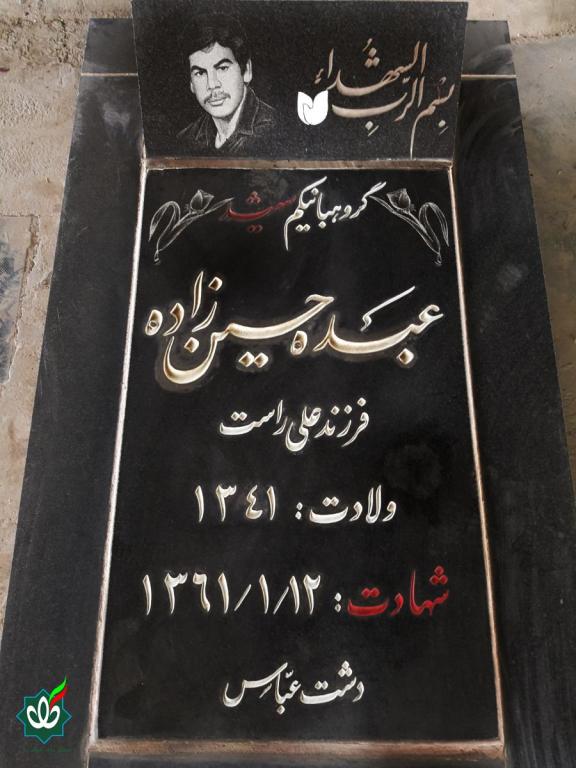 بسم الرب الشهداء
گروهبانیکم شهید
عبده حسین زاده
فرزند علی راست
ولادت: ۱۳۴۱
شهادت: ۱۳۶۱/۱/۱۲
دشت عباس